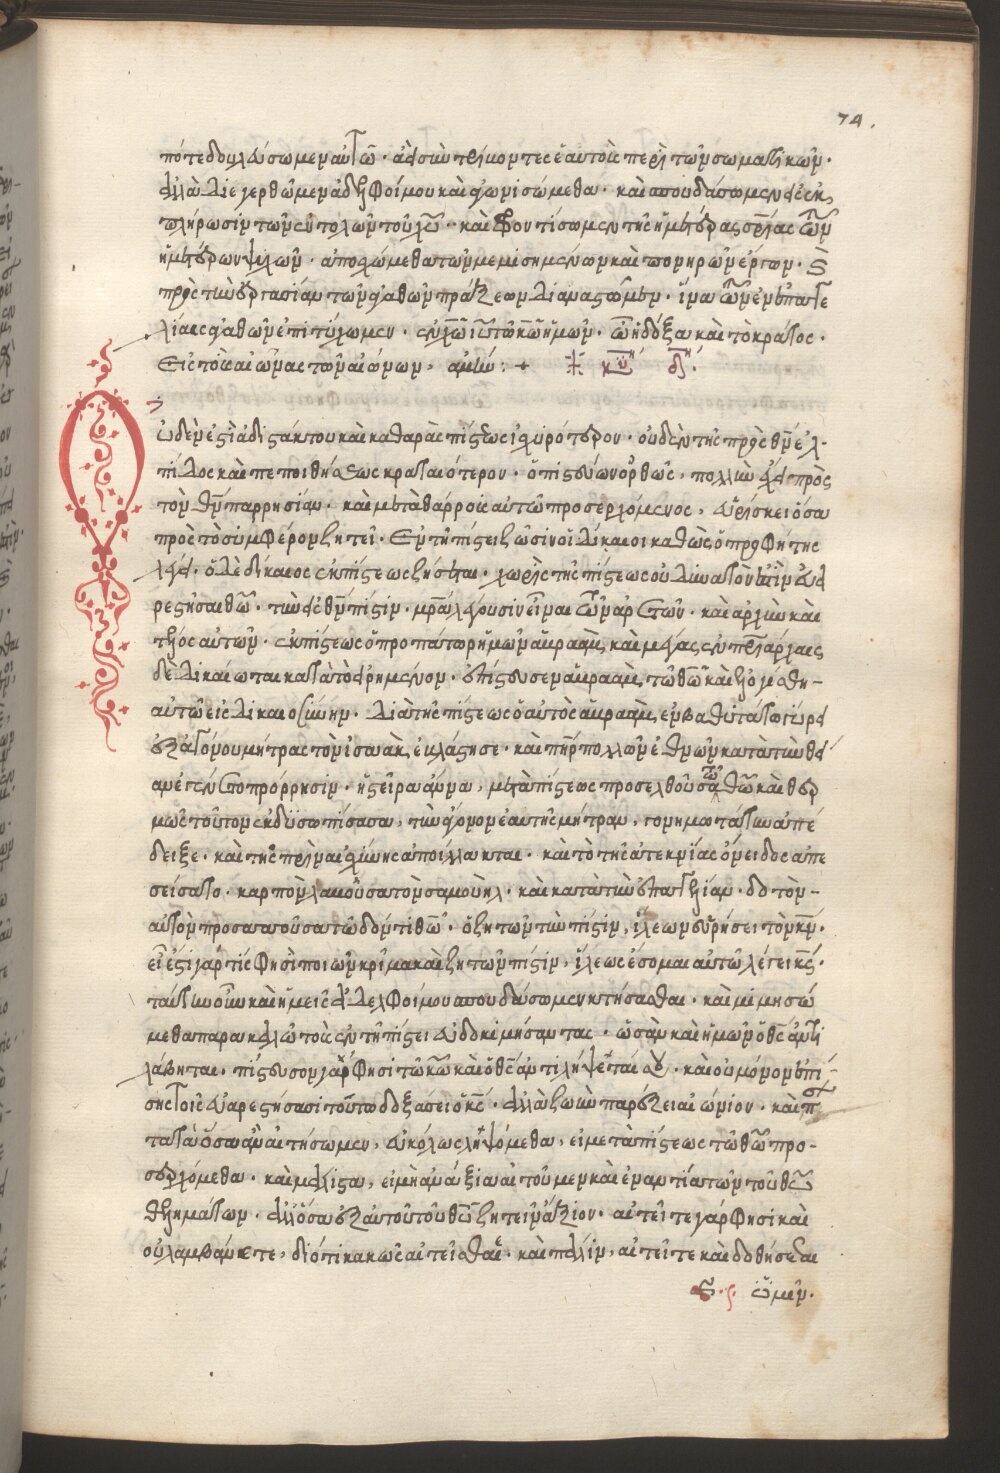 74.
πότε δουλεύσωμεν αὐτῶ. ἀσχολίαν τέμνοντες ἑαυτοῖς περὶ τῶν σωματικῶν.
ἀλλὰ διεγερθῶμεν ἀδελφοί μου καὶ χωρισώμεθα. καὶ σπουδάσωμεν εἰς ἐκ
πλήρωσιν τῶν ἐντολῶν τοῦ χυ. καὶ φροντίσωμεν τῆς ἡμετέρας σρίας τῶν
ἡμετέρων ψυχῶν. ἀποσχώμεθα τῶν μεμισημένων καὶ πονηρῶν ἔργων.
πρὸς τὴν ἐργασίαν τῶν ἀγαθῶν πράξεων διαναστῶμεν. ἵνα τῶν ἐν ἐπαγγε
λίαις ἀγαθῶν ἐπιτύχωμεν. ἐν χω ιυ τῶ κω ἡμῶν. ὧ ἡ δόξα καὶ τὸ κράτος.
εἰς τοὺς αἰῶνας τῶν αἰώνων. ἀμήν: +
Οὐδέν ἐστι ἀδιστάκτου καὶ καθαρᾶς πίστεως ἰσχυρότερον. οὐδὲν τῆς πρὸς θν ἐλ-
πίδος καὶ πεποιθήσεως κραταιότερον. ὁ πιστεύων ὀρθῶς, πολλὴν ἔχει πρὸς
τὸν θν παρρησίαν. καὶ μετὰ θάρρους αὐτῶ προσερχόμενος, εὑρίσκει ὅσα
πρὸς τὸ συμφέρον ζητεῖ. ἐν τῆ πίστει ζῶσιν οἱ δίκαιοι καθὼς ὁ προφήτης
λέγει. ὁ δὲ δίκαιος ἐκ πίστεως ζήσεται. χωρὶς τῆς πίστεως οὐ δυνατόν ἐστιν εὐα
ρεστῆσαι θω. τὴν εἰς θν πίστιν. εἶναι τῶν ἀρετῶν. καὶ ἀρχὴν καὶ
τέλος αὐτῶν. ἐκ πίστεως ὁ προπάτωρ ἡμῶν ἀβραὰμ, καὶ μέγας ἐν πατριάρχαις
δεδικαίωται κατὰ τὸ εἰρημένον. ἐπίστευσεν ἀβραὰμ, τῶ θω καὶ ἐλογίσθη-
αὐτῶ εἰς δικαιοσύνην. διὰ τῆς πίστεως ὁ αὐτὸς ἀβραὰμ, ἐν βαθυτάτω γήρα
ἐξ ἀγόνου μήτρας τὸν ἰσαὰκ ἐβλάστησε. καὶ πηρ πολλῶν ἐθνῶν κατὰ τὴν θεί
αν ἐγένετο πρόρρησιν. ἡ στεῖρα ἄννα, μετὰ πίστεως προσελθοῦσα τῶ θω καὶ θερ
μῶς τοῦτον ἐκδυσωπήσασα, τὴν ἄγονον ἑαυτῆς μήτραν, γονιμωτάτην ἀπέ
δειξε. καὶ τῆς πρὶν αἰσχύνης ἀπήλλακται. καὶ τὸ τῆς ἀτεκνίας ὄνειδος ἀπε
σείσατο. καρπὸν λαβοῦσα τὸν σαμουήλ. καὶ κατὰ τὴν ἐπαγγελίαν.
αὐτὸν προσαποῦσα τῶ δόντι θω. ὁ ζητῶν τὴν πίστιν, ἵλεων εὑρήσει τὸν κν.
εἰ ἔστι γάρ τίς φησὶ ποιῶν κρίμα καὶ ζητῶν πίστιν, ἵλεως ἔσομαι αὐτῶ λέγει κς.
ταύτην οὖν καὶ ἡμεῖς ἀδελφοί μου σπουδάσωμεν κτήσασθαι. καὶ μιμησώ
μεθα παρακαλῶ τοὺς ἐν τῆ πίστει εὐδοκιμήσαντας. ὡς ἂν καὶ ἡμῶν ὁ θς ἀντι
λάβηται. πίστευσον γάρ φησι τῶ κω καὶ ὁ θς ἀντιλήψεταί σου. καὶ οὐ μόνον ἐπὶ
γῆς τοῖς εὐαρεστήσασι τοῦτο δοξάσει ὁ κς. ἀλλὰ ζωὴν παρέξει αἰώνιον. καὶ
ταῦτα ὅσα ἂν αἰτήσωμεν, εὐκόλως ληψόμεθα, εἰ μετὰ πίστεως τῶ θω προ-
σερχόμεθα. καὶ μάλιστα, εἰ μὴ ἀνάξια αἰτοῦμεν καὶ ἐναντία τῶν τοῦ θυ
θελημάτων. ἀλλ' ὅσα ἐξ αὐτοῦ τοῦ θυ ζητεῖν ἄξιον. αἰτεῖτε γάρ φησι καὶ
οὐ λαμβάνετε, διότι κακῶς αἰτεῖσθαι. καὶ πάλιν, αἰτεῖτε καὶ δοθήσεται
ὑμῖν.